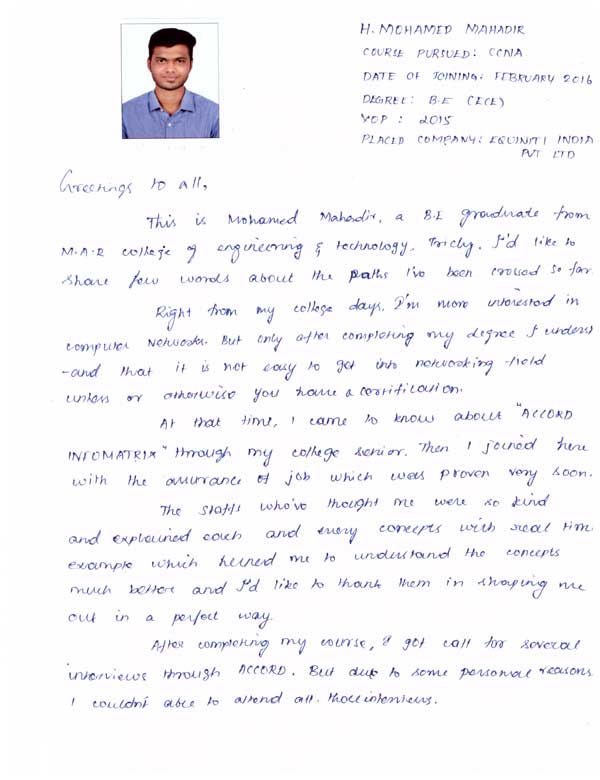 H. MOHAMED MAHADIR
COURSE PURSUED: CCNA
DATE OF JOINING: FEBRUARY 2016
DEGREE: B.E (ECE)
YOP : 2015
PLACED COMPANY: EQUINITI INDIA
PVT LTD
Greetings to all,
This is Mohamed Mahadir, a B.E graduate from
M.A.R college of engineering & technology, Trichy. I'd like to
share few words about the paths I've been crossed so far.
Right from my college days, I'm more interested in
computer Networks. But only after completing my degree I underst
-and that it is not easy to get into networking field
unless or otherwise you have a certification.
At that time, I came to know about "ACCORD
INFOMATRIX" through my college senior. Then I joined here
with the assurance of job which was proven very soon.
The staffs who've thought me were so kind
and explained each and every concepts with real time
example which helped me to understand the concepts
much better and I'd like to thank them in shaping me
out in a perfect way.
After completing my course, I got call for several
interviews through ACCORD. But due to some personal reasons
I couldn't able to attend all those interviews.